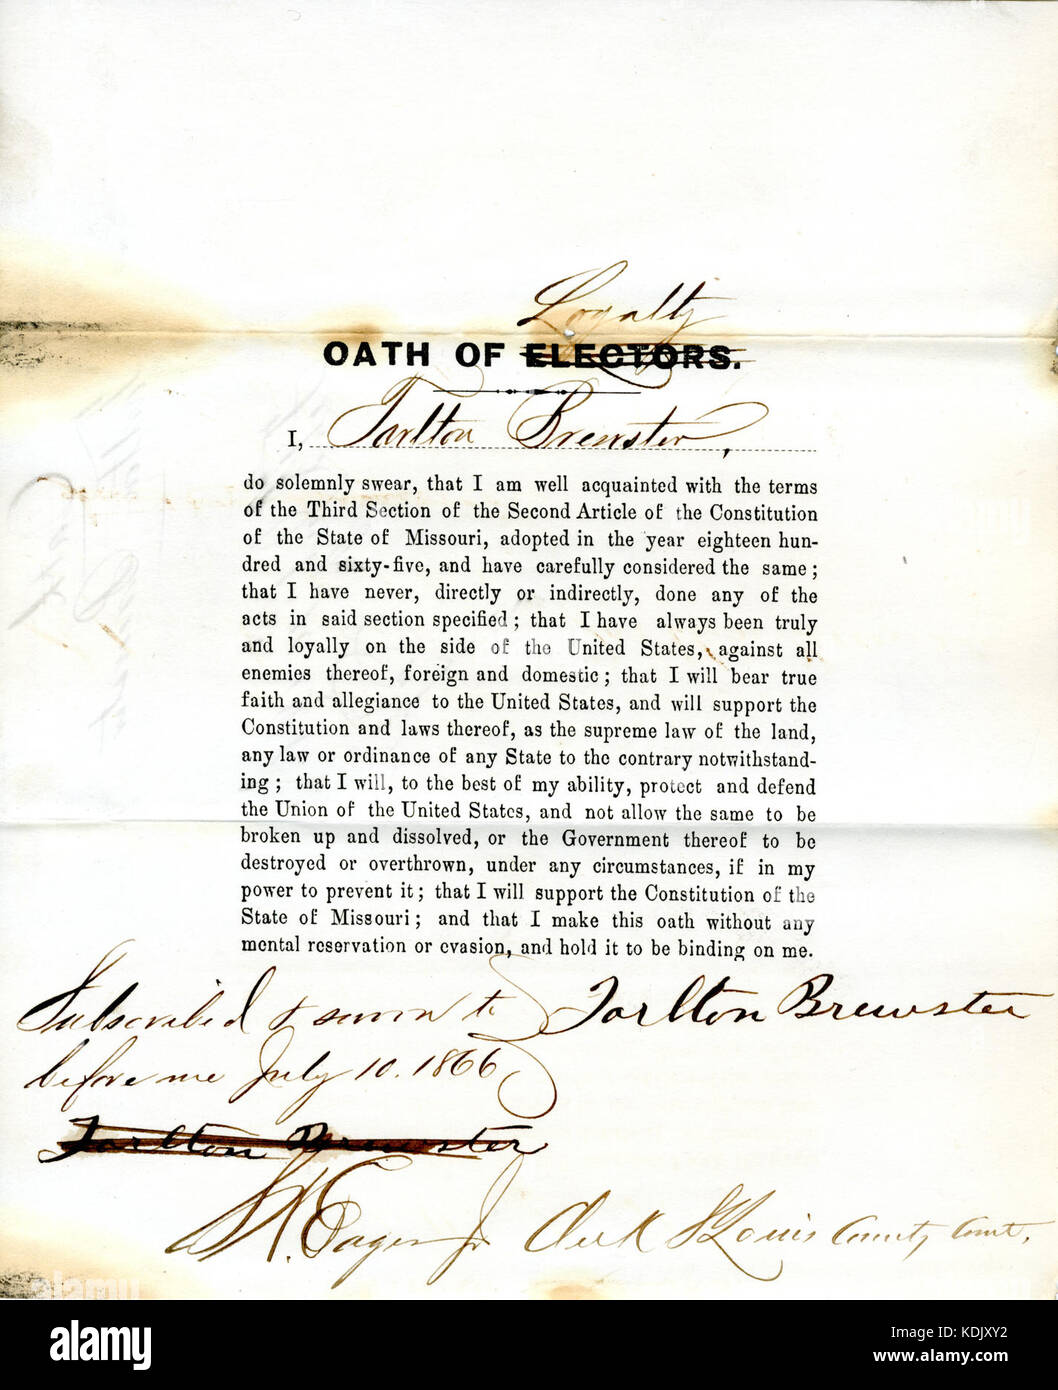 Loyalty
OATH OF ELECTORS.
I, Tarlton Brewster,
do solemnly swear, that I am well acquainted with the terms
of the Third Section of the Second Article of the Constitution
of the State of Missouri, adopted in the year eighteen hun-
dred and sixty-five, and have carefully considered the same;
that I have never, directly or indirectly, done any of the
acts in said section specified; that I have always been truly
and loyally on the side of the United States, against all
enemies thereof, foreign and domestic; that I will bear true
faith and allegiance to the United States, and will support the
Constitution and laws thereof, as the supreme law of the land,
any law or ordinance of any State to the contrary notwithstand-
ing; that I will, to the best of my ability, protect and defend
the Union of the United States, and not allow the same to be
broken up and dissolved, or the Government thereof to be
destroyed or overthrown, under any circumstances, if in my
power to prevent it; that I will support the Constitution of the
State of Missouri; and that I make this oath without any
mental reservation or evasion, and hold it to be binding on me.
Subscribed & sworn to Tarlton Brewster
before me July 10. 1866
Tarlton Brewster
Eager Jr Clerk St Louis County Court,
alamy
Image ID: KDJXY2
www.alamy.com